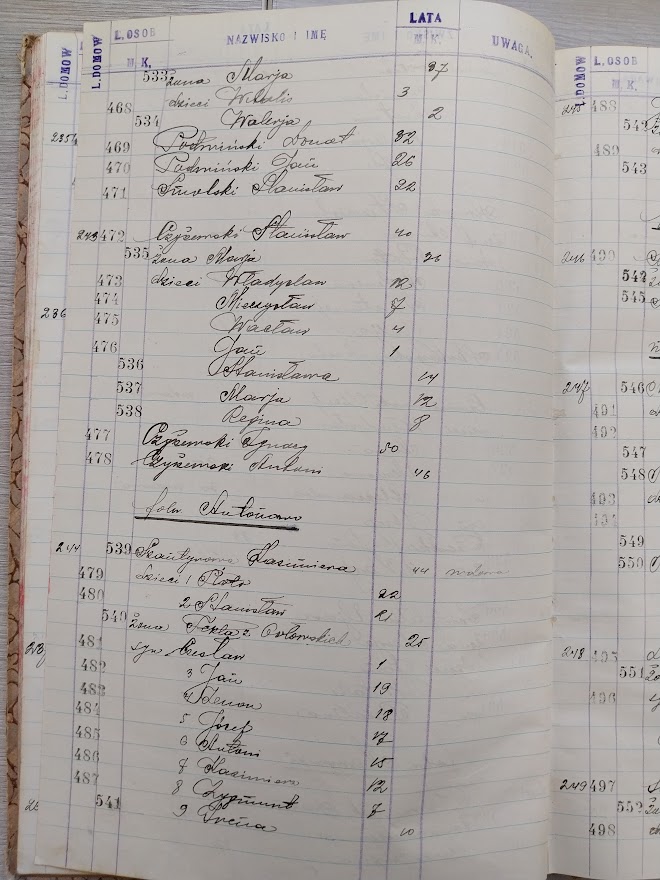 L. DOMÓW L. OSOB NAZWISKO I IMĘ LATA UWAGA.
M. K. M. K.
533 żona Marja 37
468 dzieci Witalis 3
534 Walerja 2
469 Podmiński Donat 32
470 Podmiński Jan 26
471 Smolski Stanisław 22
243 472 Czyżewski Stanisław 40
535 żona Marja 36
473 dzieci Władysław 12
474 Mieczysław 7
475 Wacław 4
476 Jan 1
536 Stanisława 14
537 Marja 12
538 Regina 8
477 Czyżewski Ignacy 50
478 Czyżewski Antoni 46
folw. Antonowo
244 539 Kazimiera 44 wdowa
479 dzieci 1 Piotr 22
480 2 Stanisław 21
540 żona Tekla z Orłowskich 25
481 syn Czesław 1
482 3 Jan 19
483 4 Zenon 18
484 5 Józef 17
485 6 Antoni 15
486 7 Kazimierz 12
487 8 Zygmunt 7
541 9 Irena 10
L. DOMÓW
236
L. DOMÓW L. OSOB
M. K.
245 488
542
489
543
246 490
544
545
247 546
491
492
547
548
493
494
549
550
248 495
551
496
249 497
552
498